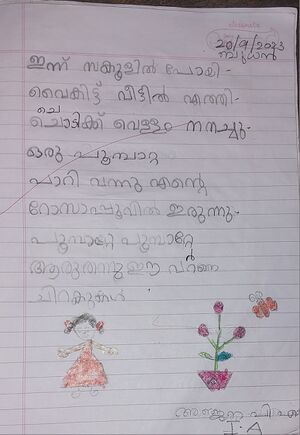 20/9/2023
ബുധൻ
ഇന്ന് സ്കൂളിൽ പോയി-
വൈകിട്ട് വീട്ടിൽ എത്തി-
ചെ
ചൊടിക്ക് വെള്ളം നനച്ചു-
ഒരു പൂമ്പാറ്റ
പാറി വന്നു എന്റെ
റോസാപ്പൂവിൽ ഇരുന്നു-
പൂമ്പാറ്റേ പൂമ്പാറ്റേ
ആരുതന്നു ഈ വർണ്ണ
ചിറകുകൾ
I. A